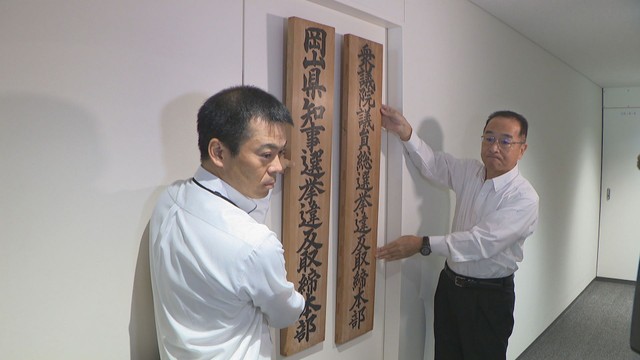 衆議院議員総選挙違反取締本部
岡山県知事選挙違反取締本部